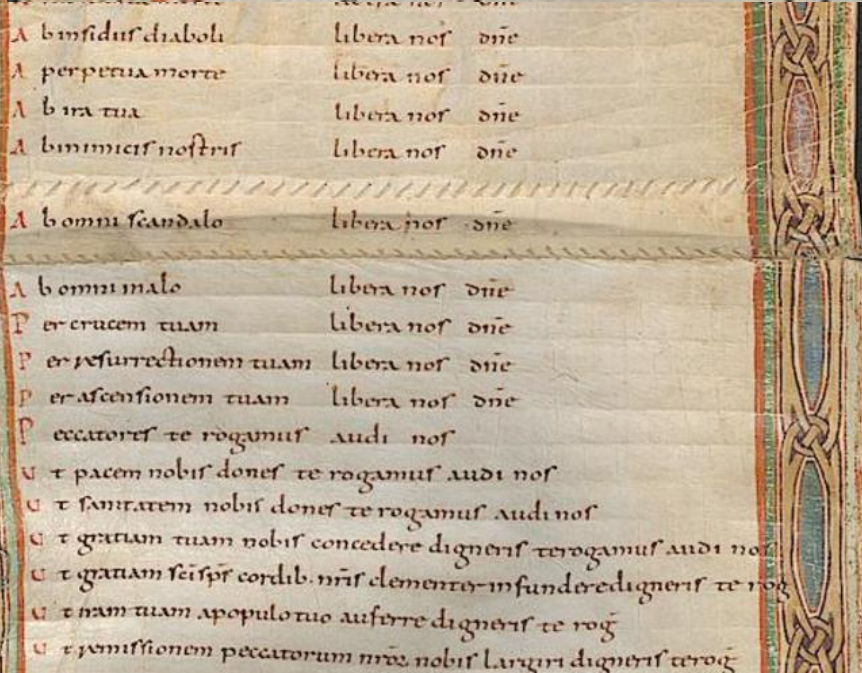 Ab insidiis diaboli libera nos dn̄e
A perpetua morte libera nos dn̄e
Ab ira tua libera nos dn̄e
Ab inimicis nostris libera nos dn̄e
Ab omni scandalo libera nos dn̄e
Ab omni malo libera nos dn̄e
Per crucem tuam libera nos dn̄e
Per resurrectionem tuam libera nos dn̄e
Per ascensionem tuam libera nos dn̄e
Peccatores te rogamus audi nos
Ut pacem nobis dones te rogamus audi nos
Ut sanitatem nobis dones te rogamus audi nos
Ut gratiam tuam nobis concedere digneris te rogamus audi nos
Ut gratiam sc̄i sp̄s cordib. nr̄is clementer infundere digneris te rog
Ut iram tuam a populo tuo auferre digneris te roḡ
Ut remissionem peccatorum nr̄oꝝ nobis largiri digneris te roḡ